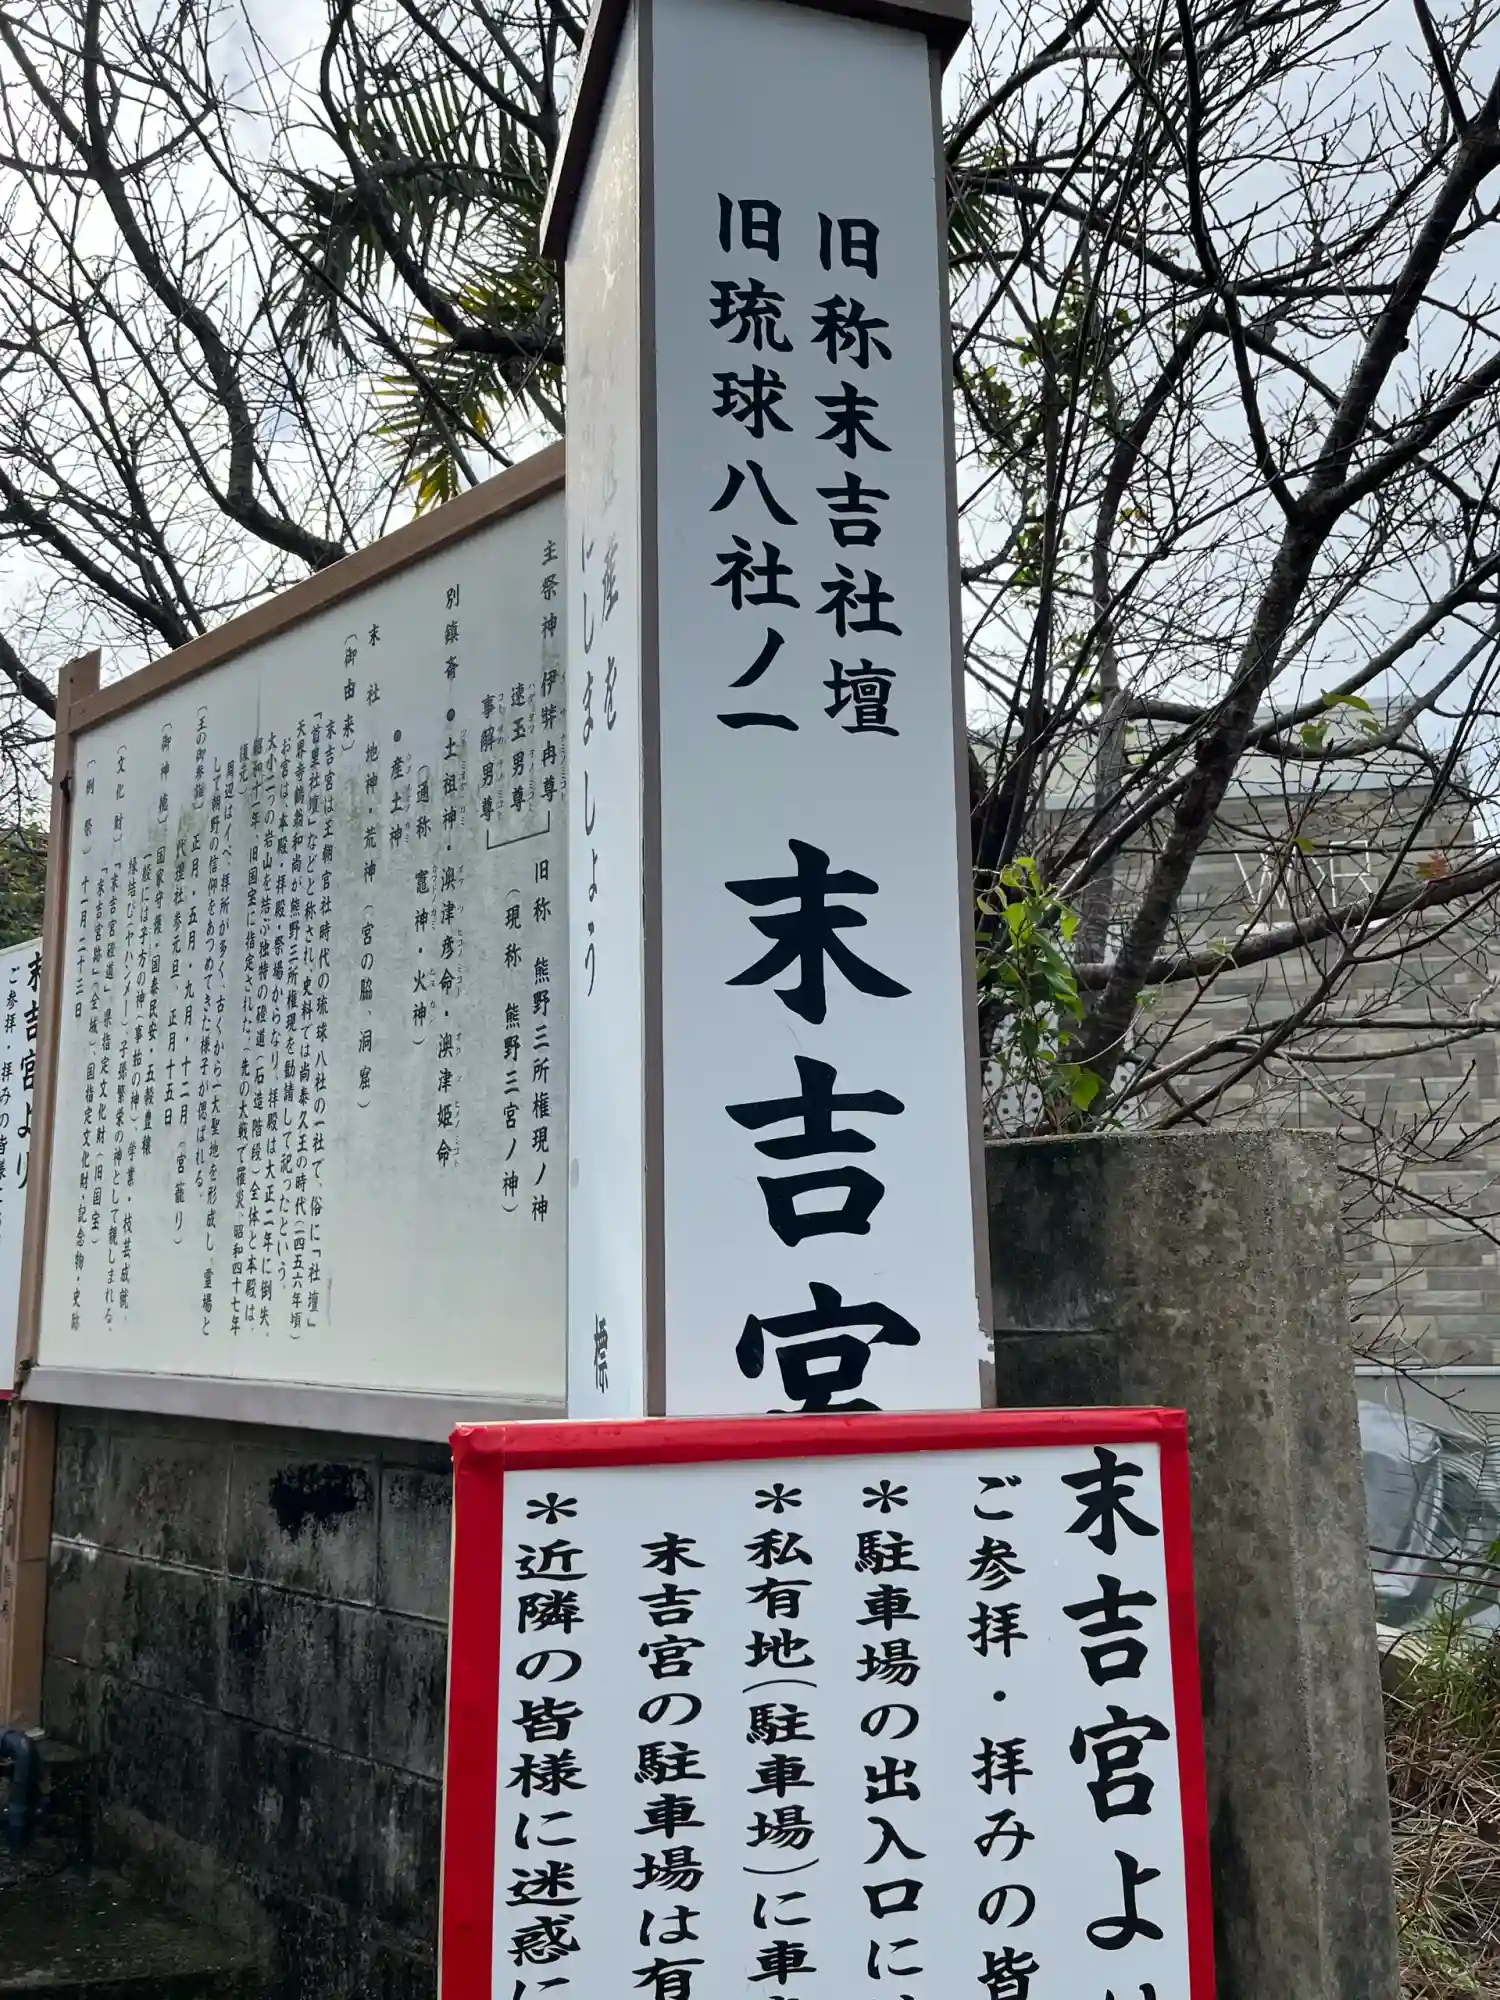 旧称末吉社壇
旧琉球八社ノ一
末吉宮
標
主祭神 伊弉冉尊
速玉男尊
事解男尊
旧称 熊野三所権現ノ神
(現称 熊野三宮ノ神)
別鎮斎 ●土祖神・澳津彦命・澳津姫命
(通称 竈神・火神)
●産土神
末社 地神・荒神(宮の脇、洞窟)
〔御由来〕
末吉宮は王朝官社時代の琉球八社の一社で、俗に「社壇」
「首里社壇」などと称され、史料では尚泰久王の時代(一四五六年頃)
天界寺鶴翁和尚が熊野三所権現を勧請して祀ったという。
お宮は、本殿・拝殿・祭場からなり、拝殿は大正二年に倒失。
大小二つの岩山を結ぶ独特の磴道(石造階段)全体と本殿は、
昭和十一年、旧国宝に指定された。(先の大戦で罹災、昭和四十七年
復元)
周辺はイベ、拝所が多く、古くから一大聖地を形成し、霊場と
して朝野の信仰をあつめてきた様子が偲ばれる。
〔王の御参詣〕正月・五月・九月・十二月(宮籠り)
代理社参元旦、正月十五日
〔御神徳〕国家守護・国泰民安・五穀豊穣
一般には子方の神(事始の神)、学業・技芸成就、
縁結び(ヤハンメー)、子孫繁栄の神として親しまれる。
〔文化財〕「末吉宮磴道」、県指定文化財(旧国宝)
「末吉宮跡」(全域)、国指定文化財・記念物・史跡
〔例祭〕十一月二十三日
末吉宮より
ご参拝・拝みの皆
＊駐車場の出入口に
＊私有地(駐車場)に車
末吉宮の駐車場は有
＊近隣の皆様に迷惑に
末吉宮より
ご参拝・拝みの皆様